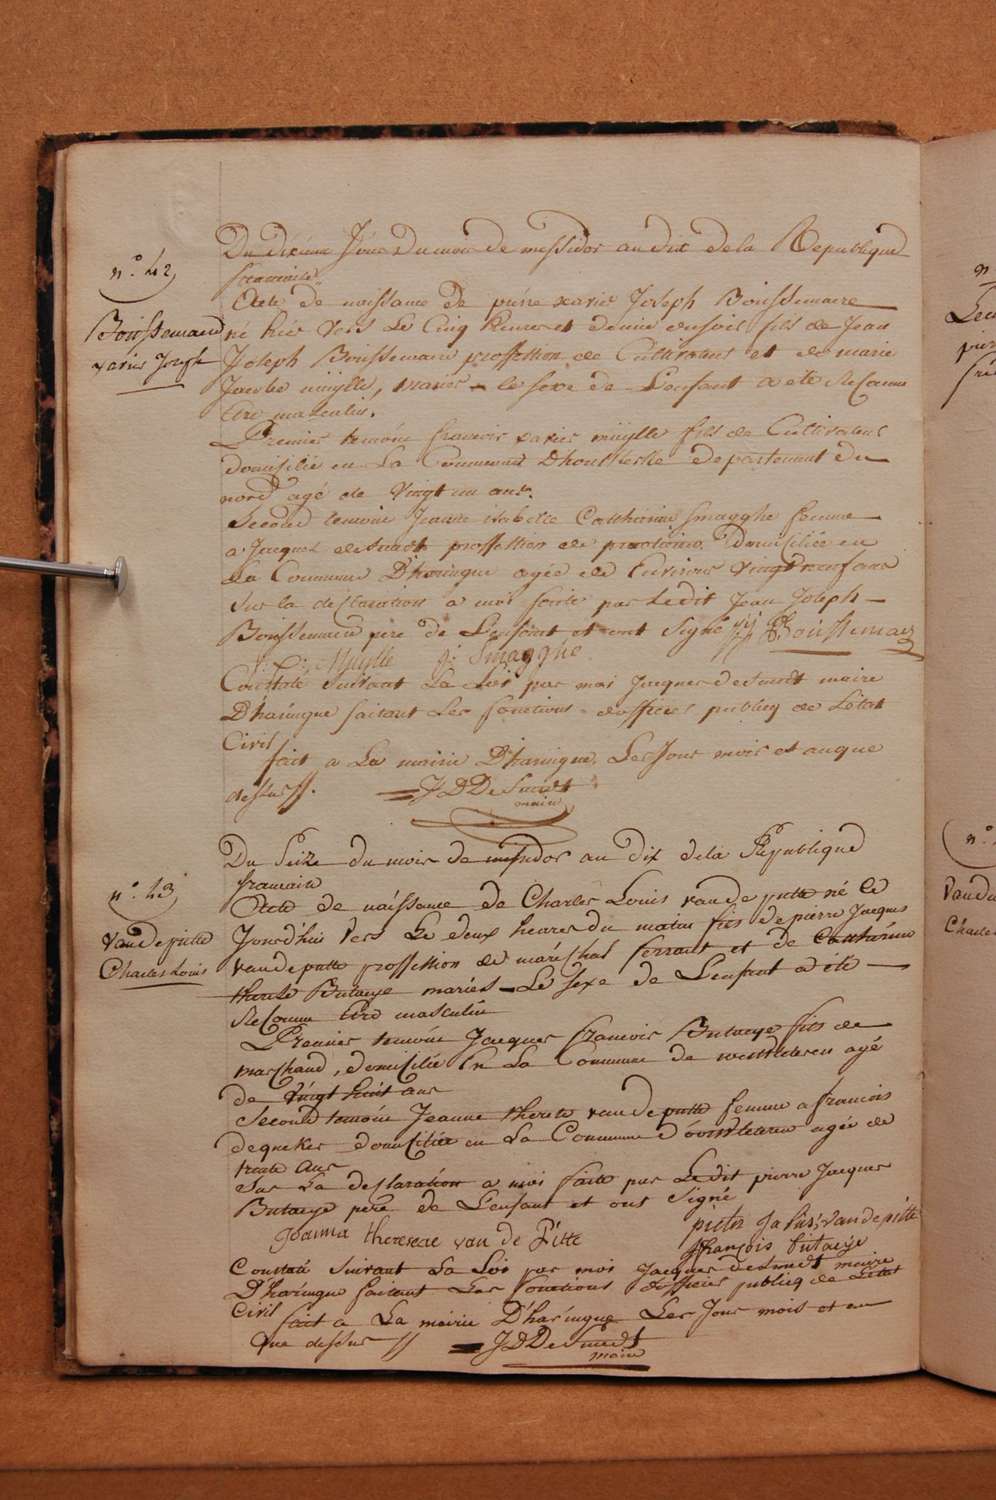 n.° 42
Boissemaere
xavier Joseph
Du dixieme Jour du mois de messidor an dix de la Republique
francaise
Acte de naissance de piérre xavier Joseph Boissemaere
né hier vers Le Cinq heures et demie du soir fils de Jean
Joseph Boissemaere proffession de Cultivateur et de marie
Jacobe muylle, mariés - le sexe de L'enfant a été Reconnu
être masculin.
Premier temoin francois xavier muylle fils de Cultivateur
domicilié en La Commune D'hontschotte departement du
nord agé de Vingt un ans.
Second temoin Jeanne isabelle Catherine Smagghe femme
a Jacques desmedt proffession de Domiciliée en
La Commune D'haringue agée de Environ Vingt neuf ans
Sur la declaration a moi faite par Ledit Jean Joseph
Boissemaere pere de L'enfant et ont signé JJ Boissemaere
f: x: Muylle j: Smagghe
Constaté suivant La Loi par moi Jacques Desmedt maire
D'haringue faisant Les fonctions d'officier publiq de L'état
Civil
fait a La mairie D'haringue Les Jour mois et an que
dessus //. JDDeSmedt
maire
n.° 43
Vandeputte
Charles Louis
Du Seize du mois de messidor an dix de la Republique
francaise
Acte de naissance de Charles Louis vandeputte né le
Jourd'hui vers Le deux heures du matin fils de pierre Jacques
vandeputte proffession de maréchal ferrant et de Catherine
therese Butaeye mariés - Le sexe de L'enfant a été
Reconnu être masculin
Premier temoin Jacques francois Butaeye fils de
marchand, domicilié En La Commune de westvleteren agé
de vingt huit ans
Second temoin Jeanne therese vandeputte femme a francois
dequeker domiciliée en La Commune d'oostvleteren agée de
trente ans
Sur La declaration a moi faite par Ledit pierre Jacques
Butaeye pere de L'enfant et ont signé
pieter Jakus vandepitte
Joanna theresia van de Pitte
francois butaije
Constaté suivant La Loi par moi Jacques desmedt maire
D'haringue faisant Les fonctions d'officier publiq de L'état
Civil
fait a La mairie D'haringue Les Jour mois et an
que dessus // JDDeSmedt
maire